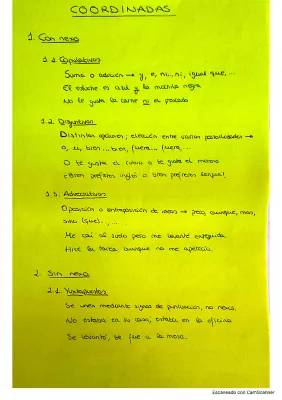 COORDINADAS
1. Con nexo
1.1. Copulativas
Suma o adición → y, e, ni...ni, igual que,...
El estuche es azul y la mochila negra
No le gusta la carne ni el pescado
1.2. Disyuntivas
Distintas opciones; elección entre varias posibilidades →
o, u, bien...bien, fuera...fuera,...
O te gusta el rubio o te gusta el moreno
¿Bien prefieres inglés o bien prefieres lengua?
1.3. Adversativas
Oposición o contraposición de ideas → pero, aunque, mas,
sino (que)...,...
Me caí al suelo pero me levanté enseguida
Hice la tarea aunque no me apetecía.
2. Sin nexo
2.1. Yuxtapuestas
Se unen mediante signos de puntuación, no nexos.
No estaba en su casa, estaba en la oficina
Se levantó, se fue a la mesa.
Escaneado con CamScanner